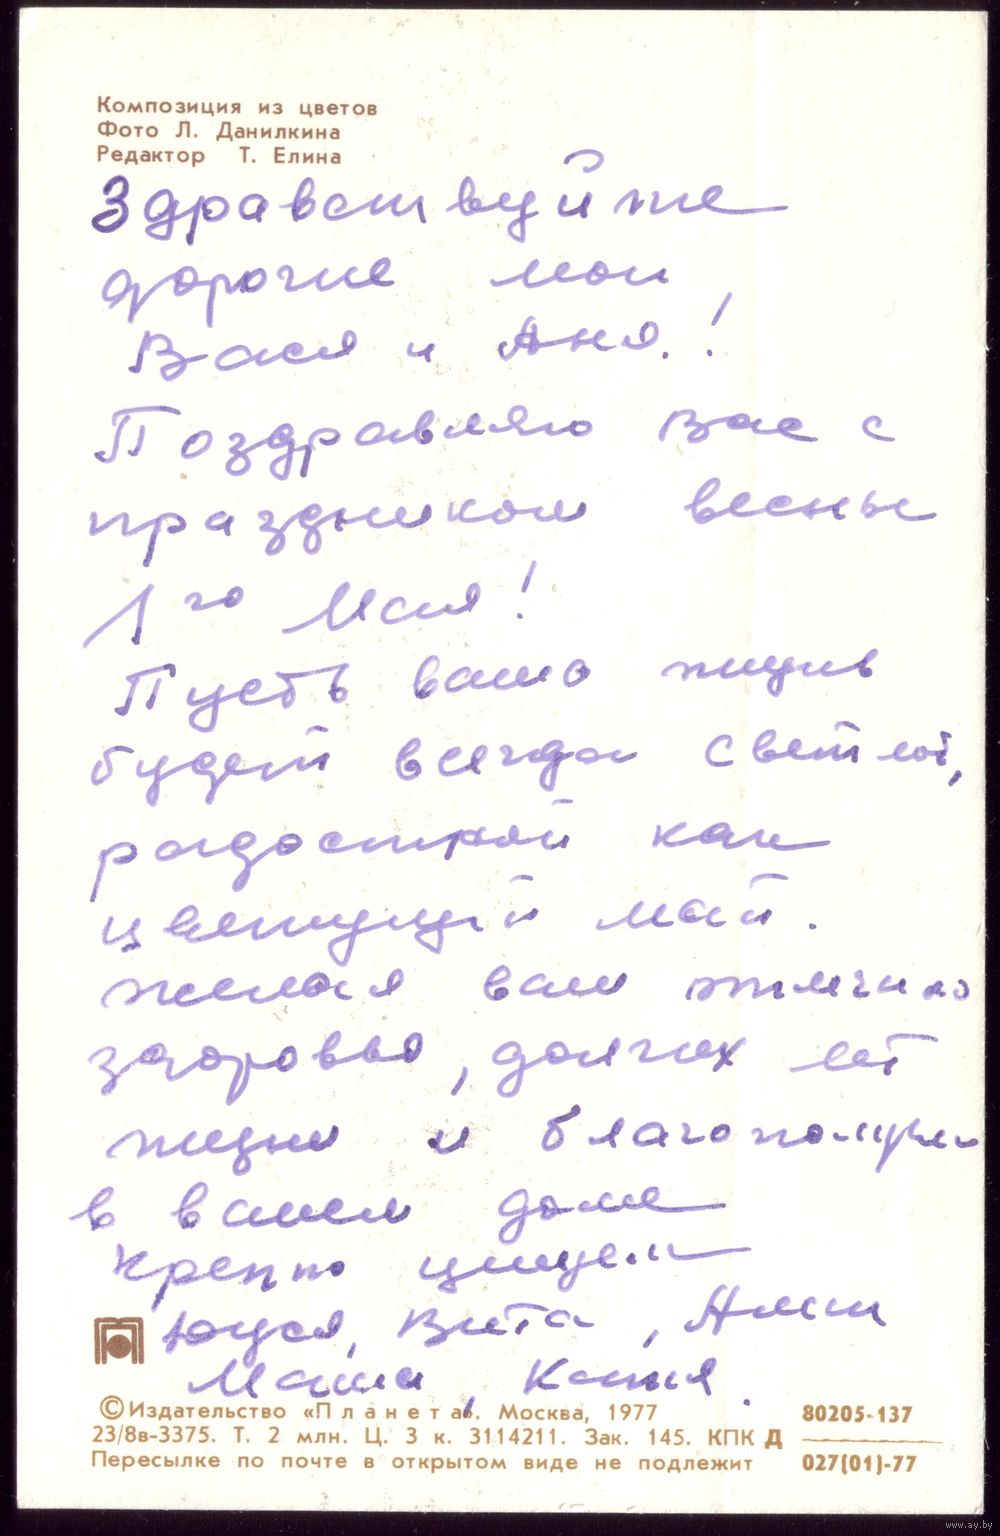 Композиция из цветов
Фото Л. Данилкина
Редактор Т. Елина
Здравствуйте
дорогие мои
Вася и Аня!
Поздравляю Вас с
праздником весны
1го Мая!
Пусть ваша жизнь
будет всегда светлой,
радостной как
цветущий май.
желаем вам отличного
здоровья, долгих лет
жизни и благополучия
в вашем доме
Крепко целуем
Вита,
Маша, Катя.
© Издательство «Планета». Москва, 1977
23/8в-3375. Т. 2 млн. Ц. 3 к. 3114211. Зак. 145. КПК Д
Пересылке по почте в открытом виде не подлежит
80205-137
027(01)-77
www.ay.by